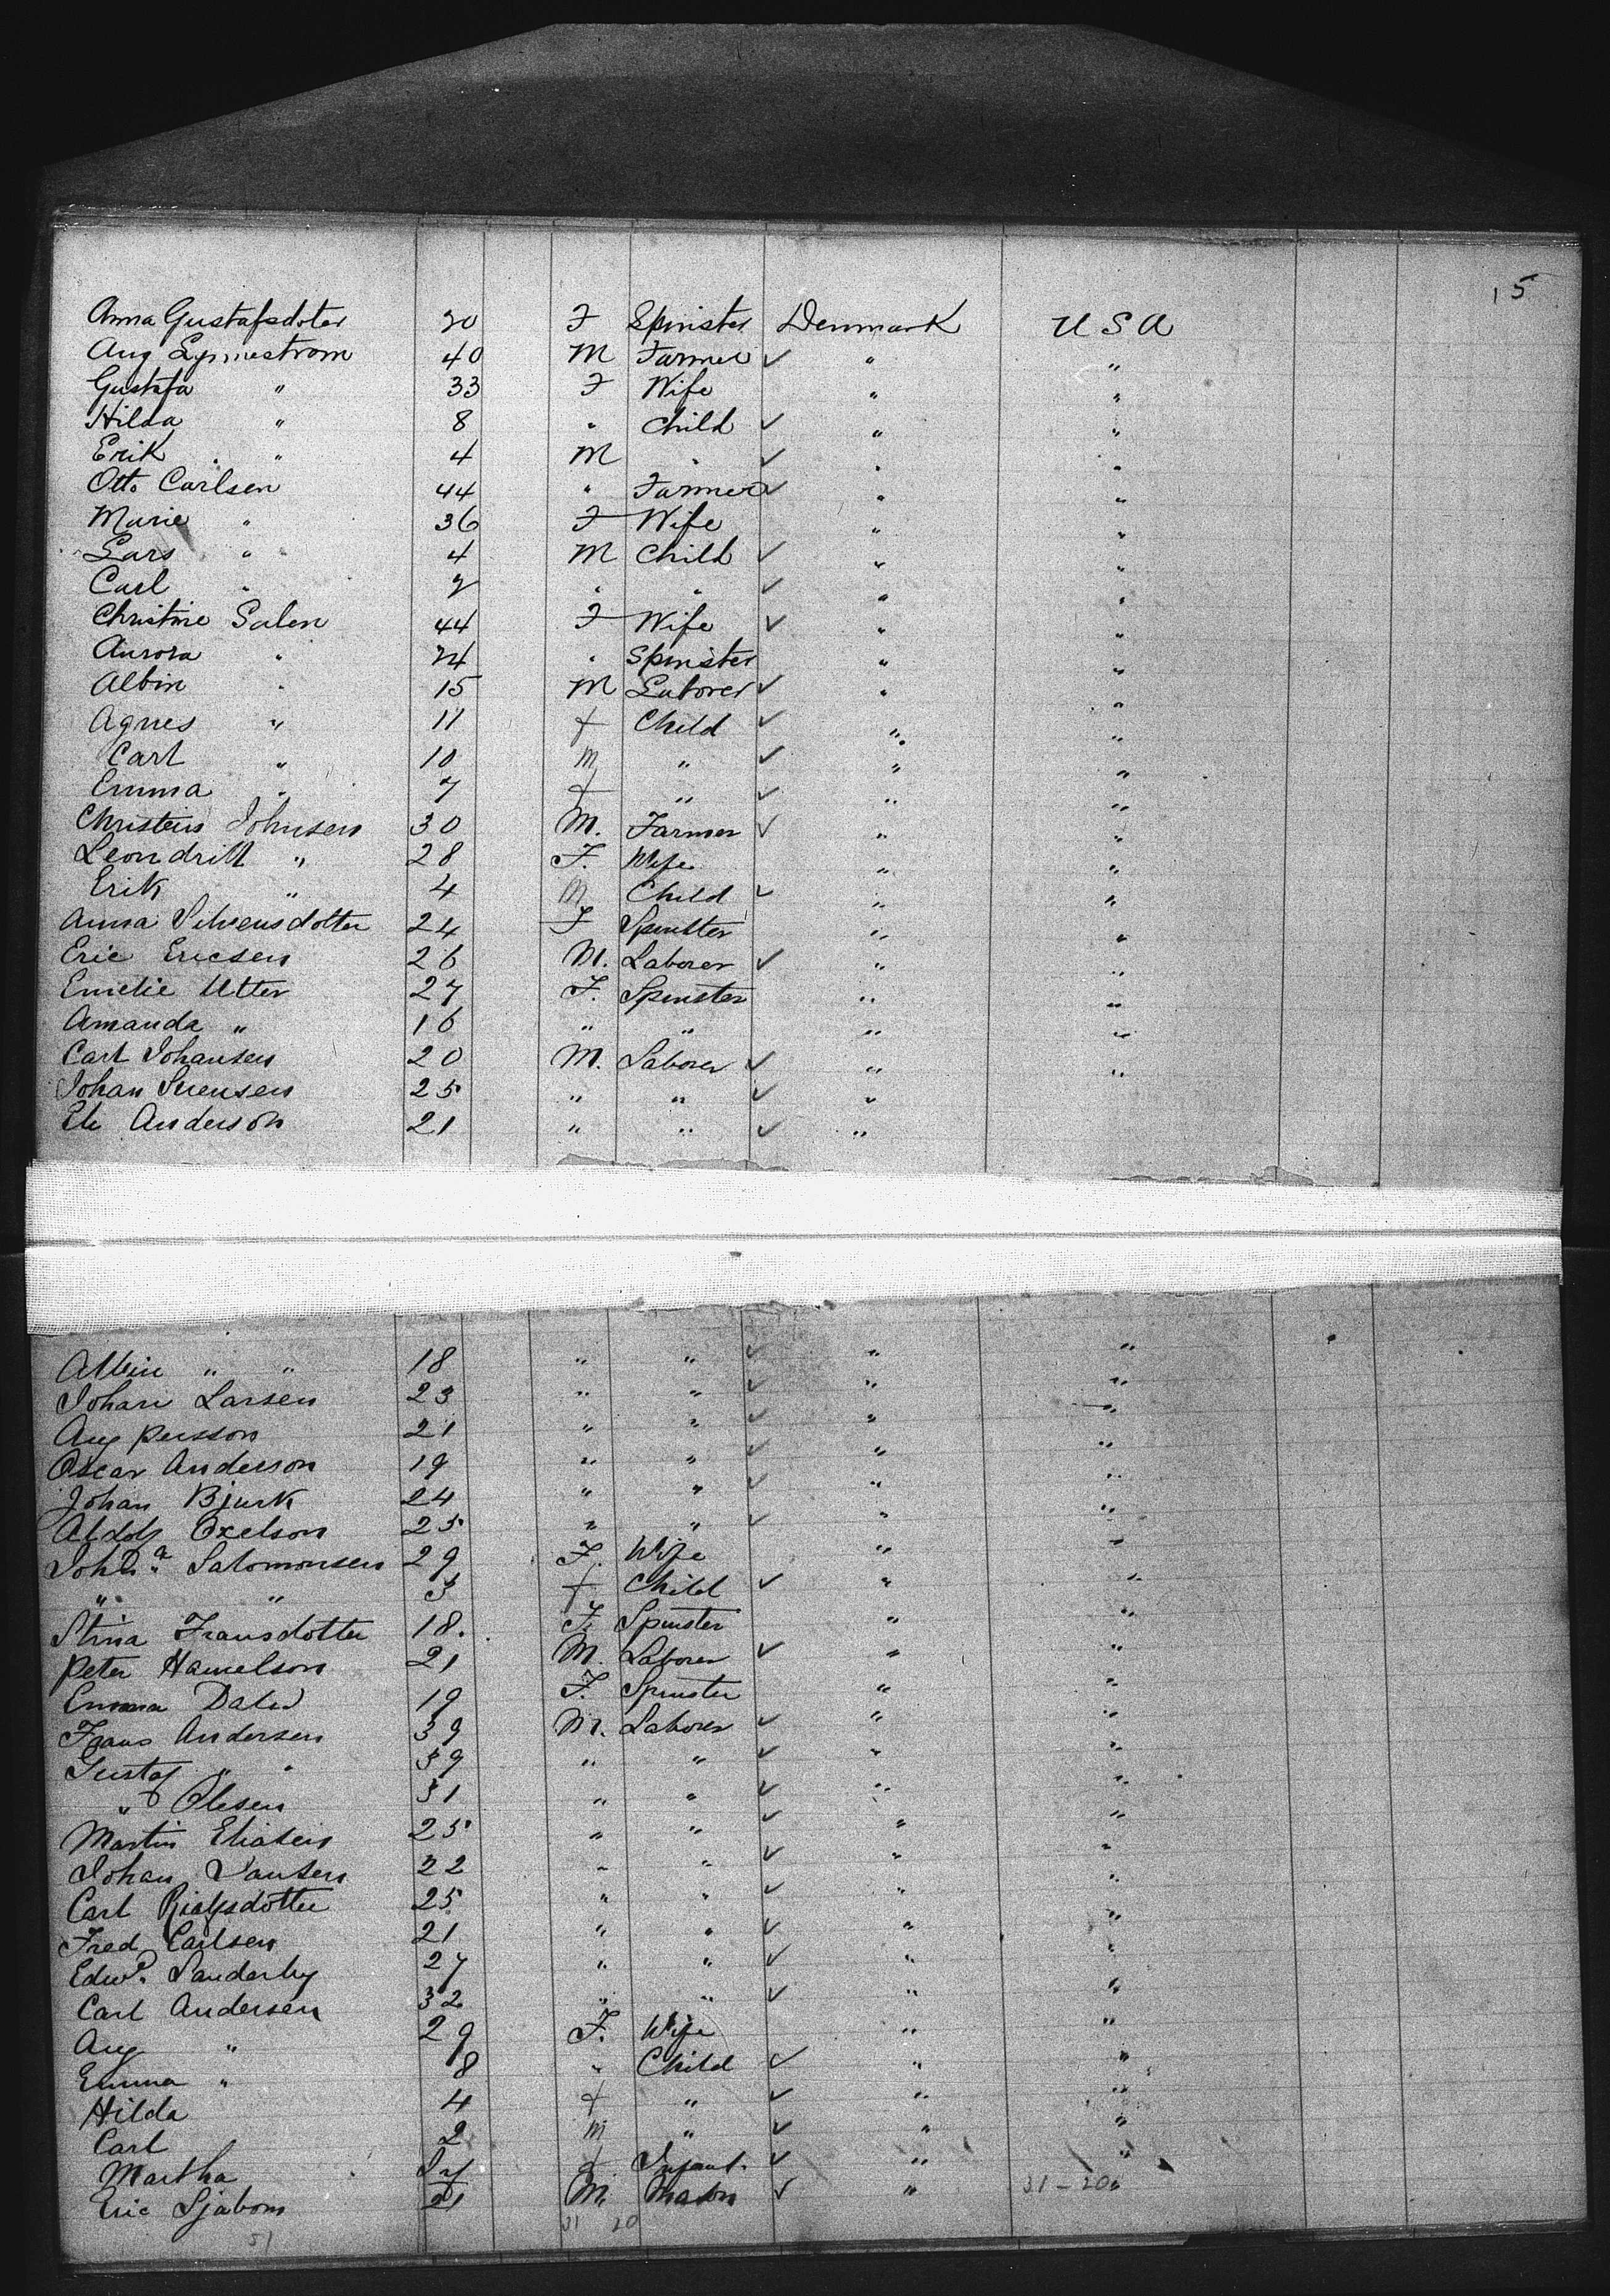 15
Anna Gustafsdoter 20 F Spinster Denmark USA
Aug Lynnestrom 40 M Farmer ✓ " "
Gustafa " 33 F Wife " "
Hilda " 8 " Child ✓ " "
Erik " 4 M " ✓ " "
Otto Carlsen 44 " Farmer ✓ " "
Marie " 36 F Wife " "
Lars " 4 M Child ✓ " "
Carl " 2 " " ✓ " "
Christine Salen 44 F Wife ✓ " "
Aurora " 24 " Spinster " "
Albin " 15 M Laborer ✓ " "
Agnes " 11 f Child ✓ " "
Carl " 10 m " ✓ " "
Emma " 7 f " ✓ " "
Christein Johnsen 30 M. Farmer ✓ " "
Leondrill " 28 F. Wife " "
Erik " 4 M Child ✓ " "
Anna Schvensdotter 24 F Spinster " "
Eric Ericsen 26 M. Laborer ✓ " "
Emelie Utter 27 F. Spinster " "
Amanda " 16 " " " "
Carl Johansen 20 M. Laborer ✓ " "
Johan Svensen 25 " " ✓ "
Anderson 21 " " ✓ "
Albin " " 18 " " ✓ " "
Johan Larsen 23 " " ✓ " "
Aug Persson 21 " " ✓ " "
Oscar Anderson 19 " " ✓ " "
Johan Bjurk 24 " " ✓ " "
Aldolf Oxelson 25 " " ✓ " "
Salomonsen 29 F. Wife " "
" " 3 f Child ✓ " "
Stina Fransdotter 18. F. Spinster " "
Peter Hamelson 21 M. Laborer ✓ " "
Emma 19 F. Spinster " "
Frans Andersen 39 M. Laborer ✓ " "
Gustaf " " 39 " " ✓ " "
" Olesen 31 " " ✓ " "
Martin Eliasen 25 " " ✓ " "
Johan 22 " " ✓ " "
Carl 25 " " ✓ " "
Fred Carlsen 21 " " ✓ " "
Edwd. Sanderby 27 " " ✓ " "
Carl Andersen 32 " " ✓ " "
Aug " 29 F. Wife " "
Emma " 8 " Child ✓ " "
Hilda 4 f " ✓ " "
Carl 2 m " ✓ " "
Martha f Infant ✓ " "
Eric Sjabom 21 M. Mason ✓ " 31-20 "
51 31 20